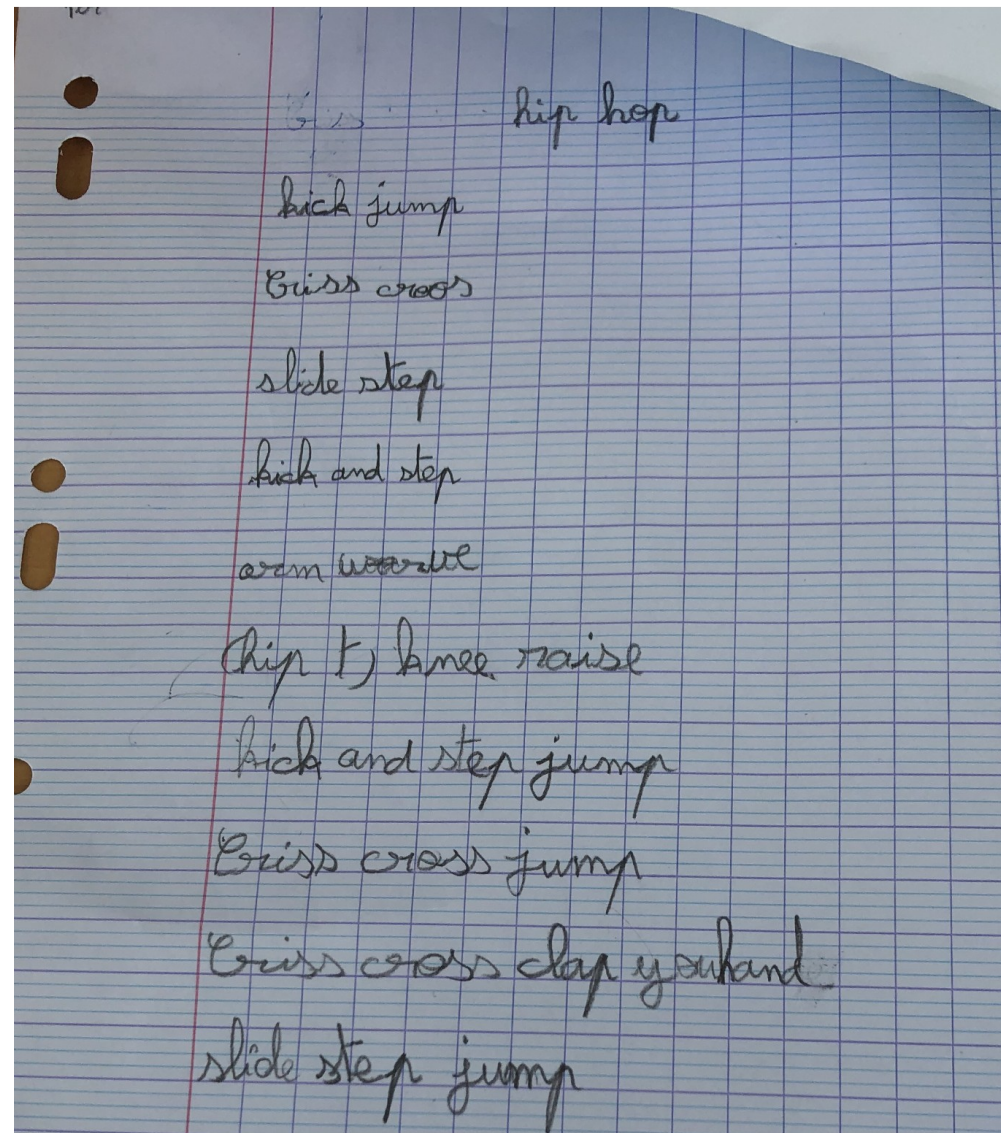 hip hop
kick jump
Criss croos
slide step
kick and step
arm
(hip t) knee raise
kick and step jump
Criss cross jump
Criss cross clap youhand
slide step jump